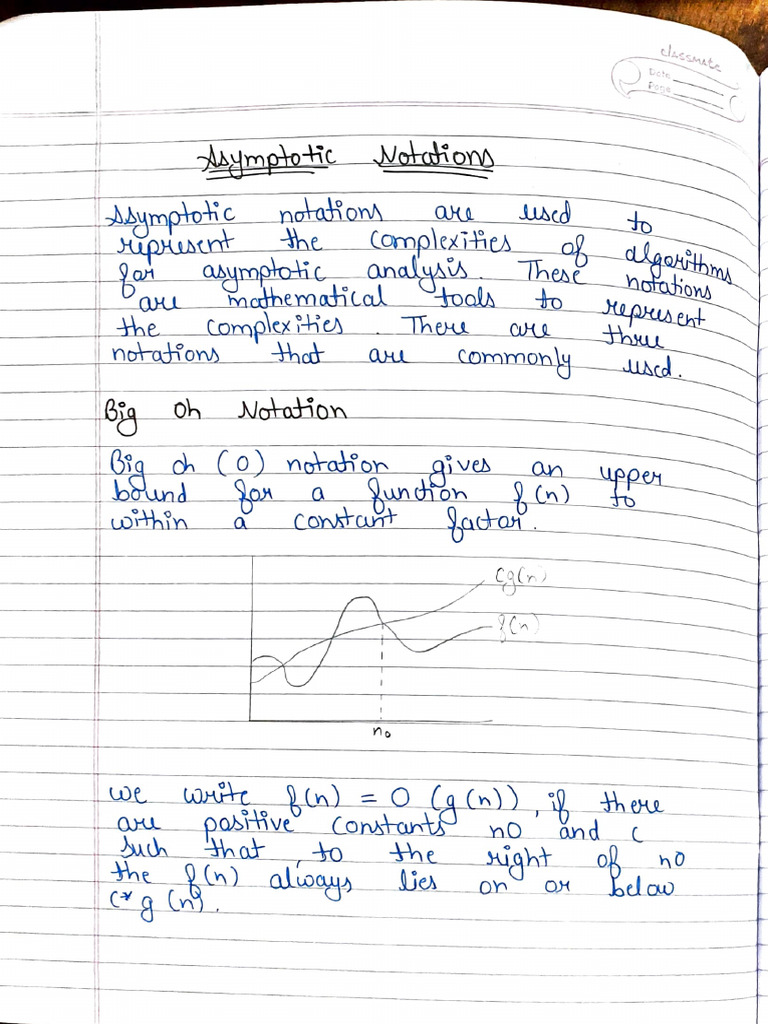 classmate
Date
Page
Asymptotic Notations
Asymptotic notations are used to
represent the complexities of algorithms
for asymptotic analysis. These notations
are mathematical tools to represent
the complexities. There are three
notations that are commonly used.
Big Oh Notation
Big oh (O) notation gives an upper
bound for a function f(n) to
within a constant factor.
Cg(n)
f(n)
n₀
we write f(n) = O (g(n)), if there
are positive constants n0 and c
such that, to the right of n0
the f(n) always lies on or below
c* g(n).